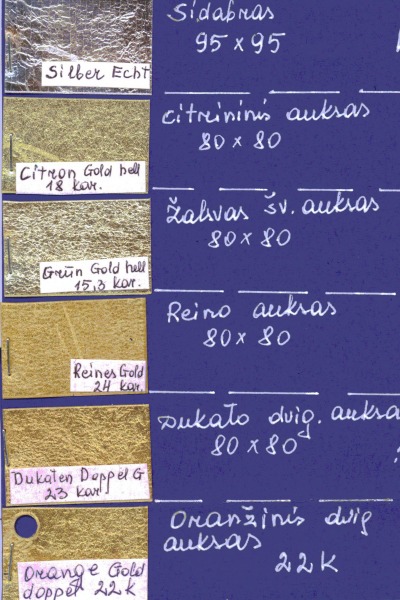 Sidabras
95 x 95
Silber Echt
Citrininis auksas
80 x 80
Citron Gold hell
18 kar.
Žalsvas šv. auksas
80 x 80
Grün Gold hell
15,3 kar.
Reino auksas
80 x 80
Reines Gold
24 kar.
Dukato dvig. auksa
80 x 80
Dukaten Doppel G
23 kar
Oranžinis dvig
auksas
22 K
Orange Gold
doppel 22 K